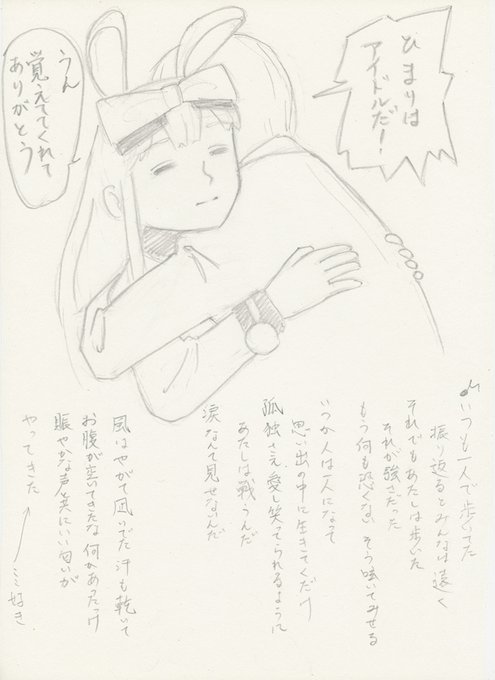 ひまりは
アイドルだー!
うん
覚えててくれて
ありがとう
♪いつも一人で歩いてた
振り返るとみんなは遠く
それでもあたしは歩いた
それが強さだった
もう何も恐くない そう呟いてみせる
いつか人は一人になって
思い出の中に生きてくだけ
孤独さえ愛し笑ってられるように
あたしは戦うんだ
涙なんて見せないんだ
風はやがて凪いでた 汗も乾いて
お腹が空いてきたな 何かあったっけ
賑やかな声と共にいい匂いが
やってきた
ここ好き